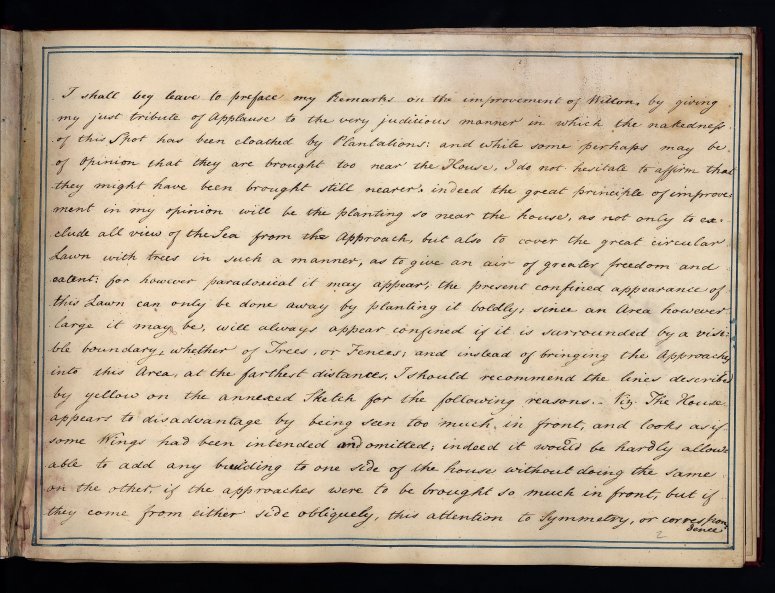 I shall beg leave to preface my Remarks on the improvement of Wilton, by giving
my just tribute of Applause to the very judicious manner in which the nakedness
of this Spot has been cloathed by Plantations: and while some perhaps may be
of opinion that they are brought too near the House, I do not hesitate to affirm that
they might have been brought still nearer; indeed the great principle of improve-
ment in my opinion will be the planting so near the house, as not only to ex-
clude all view of the Sea from the Approach, but also to cover the great circular
Lawn with trees in such a manner, as to give an air of greater freedom and
extent; for however paradoxical it may appear, the present confined appearance of
this Lawn can only be done away by planting it boldly; since an Area however
large it may be, will always appear confined if it is surrounded by a visi-
ble boundary, whether of Trees, or Fences; and instead of bringing the Approaches
into this Area, at the farthest distances, I should recommend the lines described
by yellow on the annexed Sketch for the following reasons. - Viz. The House
appears to disadvantage by being seen too much in front, and looks as if
some Wings had been intended and omitted; indeed it would be hardly allow-
able to add any building to one side of the house without doing the same
on the other, if the approaches were to be brought so much in front, but if
they come from either side obliquely, this attention to Symmetry, or correspon-
dence
2